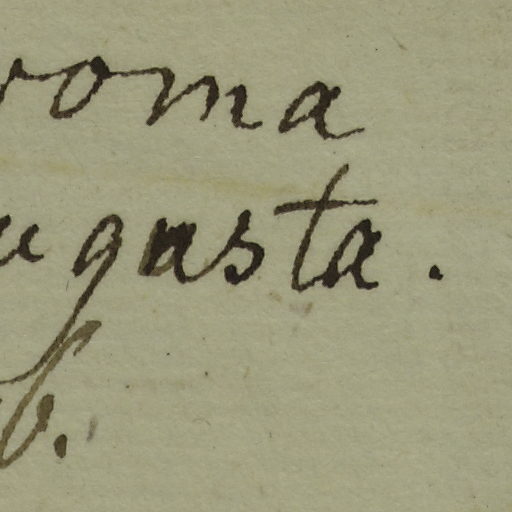 roma
ugusta.
b.